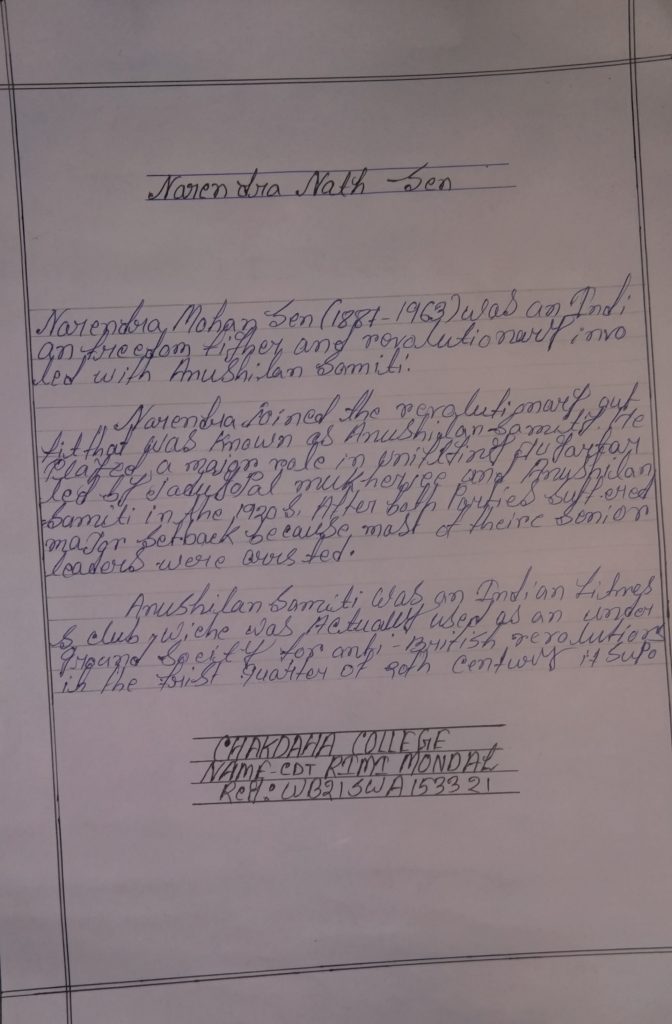 Narendra Nath Sen
Narendra Mohan Sen (1887-1963) was an Indi
an freedom figher and rovalutionary invo
led with Anushilan Samiti.
Narendra Joined the revolutionary out
fit that was known as Anushilan Samiti. He
Played a major role in uniting Jugantar
led by Jadugopal mukherjee and Anushilan
Samiti in the 1920s. After both Parties suffered
major serback because most of theirc Senior
leaders were arrsted.
Anushilan Samiti was an Indian fitnes
s club wiche was Actually used as an under
ground Society for anti-British revolution
in the frist quarter of 20th Century it supo
CHAKDAHA COLLEGE
NAME-CDT RIMI MONDAL
REG: WB21SWA153321